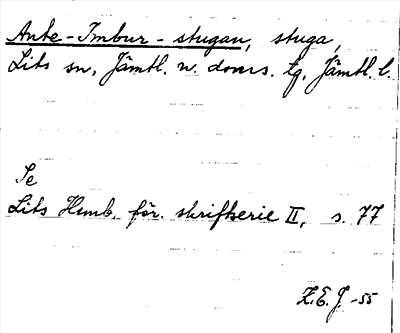 Ante-Imbur-stugan, stuga,
Lits sn, Jämtl. v. doms. tg, Jämtl. l.
Se
Lits Hemb. för. skriftserie II, s. 77
Z.E.J. -55